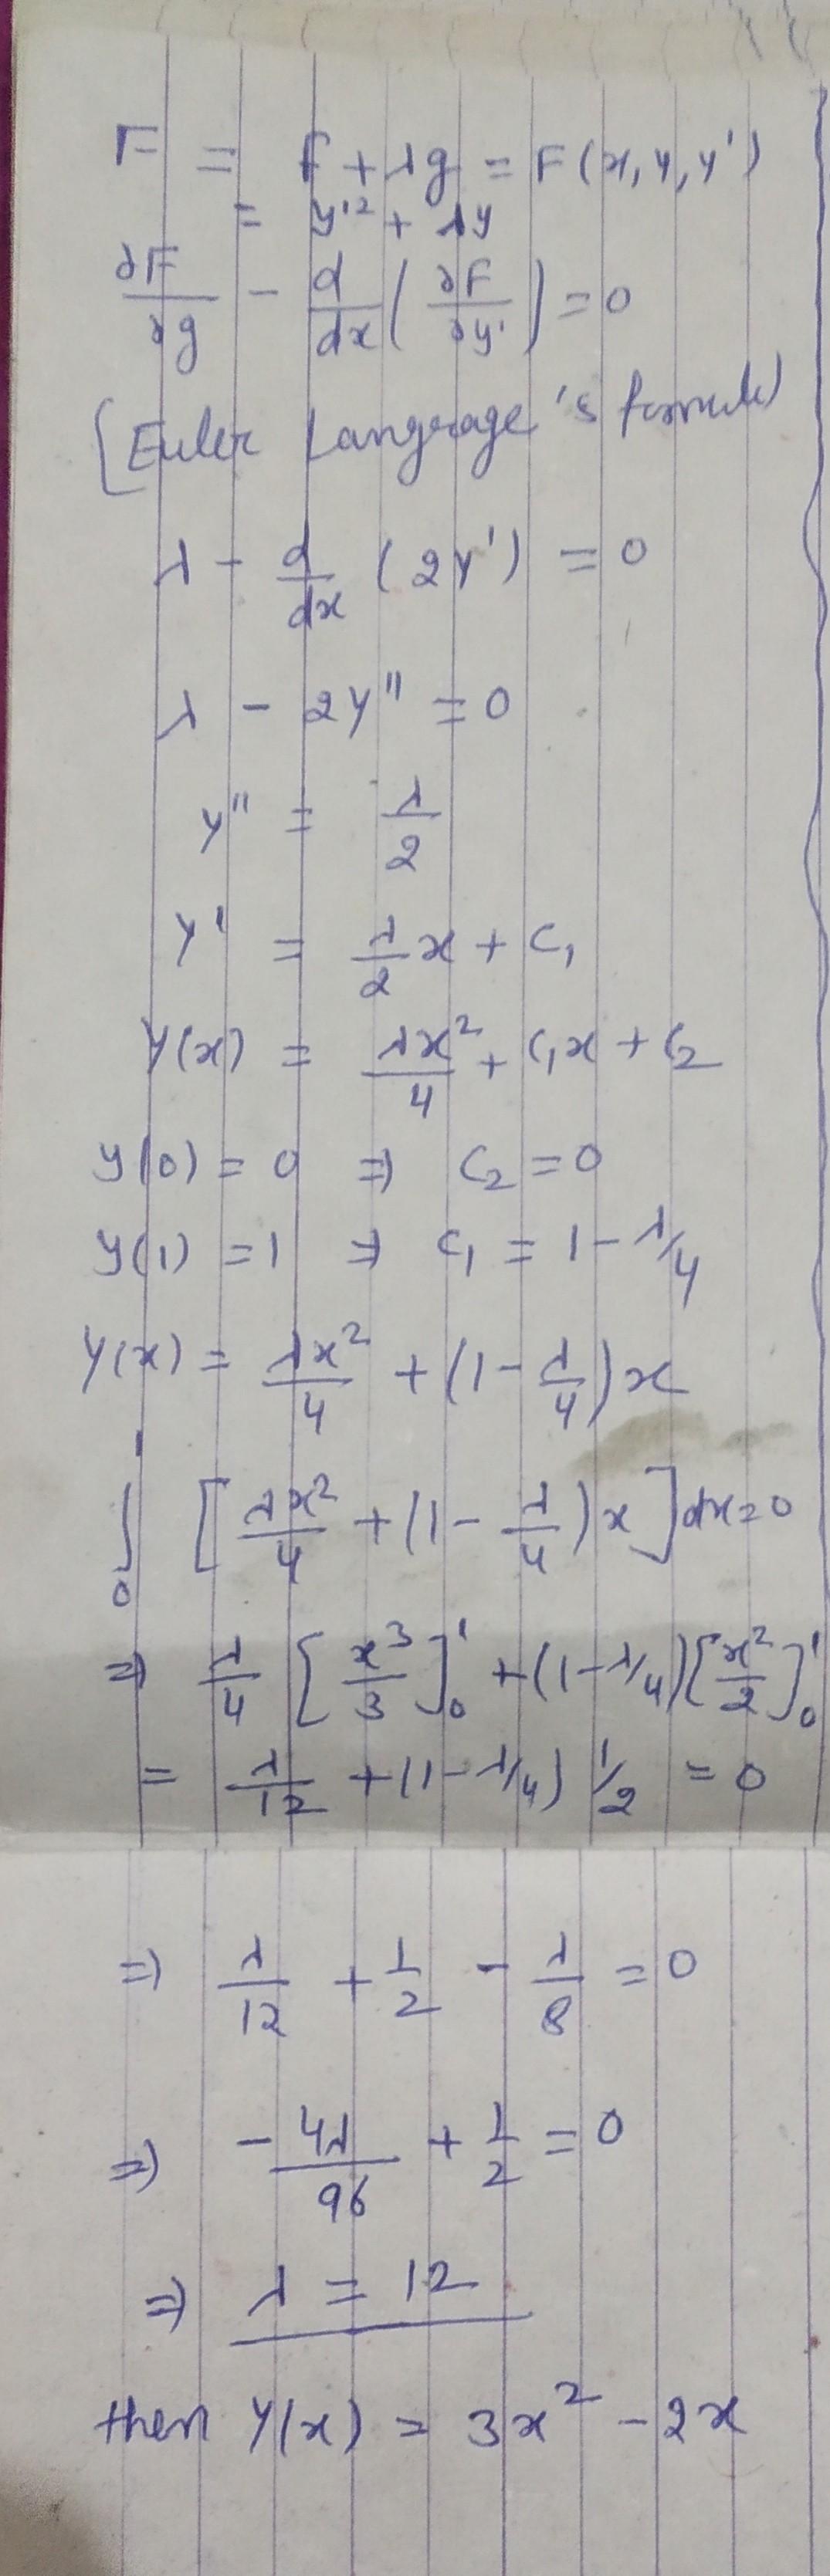 F = f + λg = F(x, y, y')
= y'² + λy
∂F/∂g - d/dx (∂F/∂y') = 0
[Euler Language's formula)
λ - d/dx (2y') = 0
λ - 2y" = 0
y" = λ/2
y' = λ/2 x + C₁
y(x) = λx²/4 + C₁x + C₂
y(0) = 0 ⇒ C₂ = 0
y(1) = 1 ⇒ C₁ = 1 - λ/4
y(x) = λx²/4 + (1 - λ/4)x
∫₀¹ [λx²/4 + (1 - λ/4)x] dx = 0
⇒ λ/4 [x³/3]₀¹ + (1 - λ/4)[x²/2]₀¹
= λ/12 + (1 - λ/4) 1/2 = 0
⇒ λ/12 + 1/2 - λ/8 = 0
⇒ -4λ/96 + 1/2 = 0
⇒ λ = 12
then y(x) = 3x² - 2x